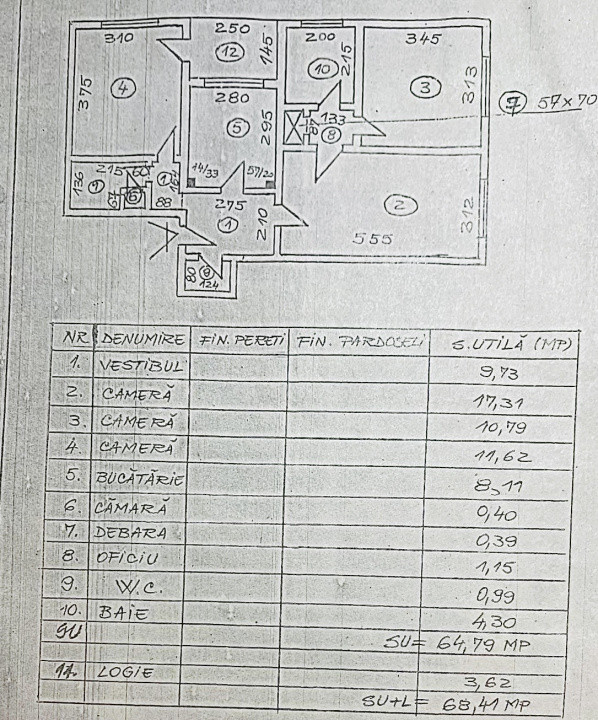 310
250
12
145
200
215
10
345
375
4
280
3
313
7 57×70
133
87
8
5
295
14/33
57/20
136
9
215
60
1
67
6
88
275
1
210
2
312
555
80
9
124
NR DENUMIRE FIN. PEREȚI FIN. PARDOSELI S.UTILĂ (MP)
1. VESTIBUL 9,73
2. CAMERĂ 17,31
3. CAMERĂ 10,79
4. CAMERĂ 11,62
5. BUCĂTĂRIE 8,11
6. CĂMARĂ 0,40
7. DEBARA 0,39
8. OFICIU 1,15
9. W.C. 0,99
10. BAIE 4,30
SU SU= 64,79 MP
LOGIE 3,62
SU+L= 68,41 MP